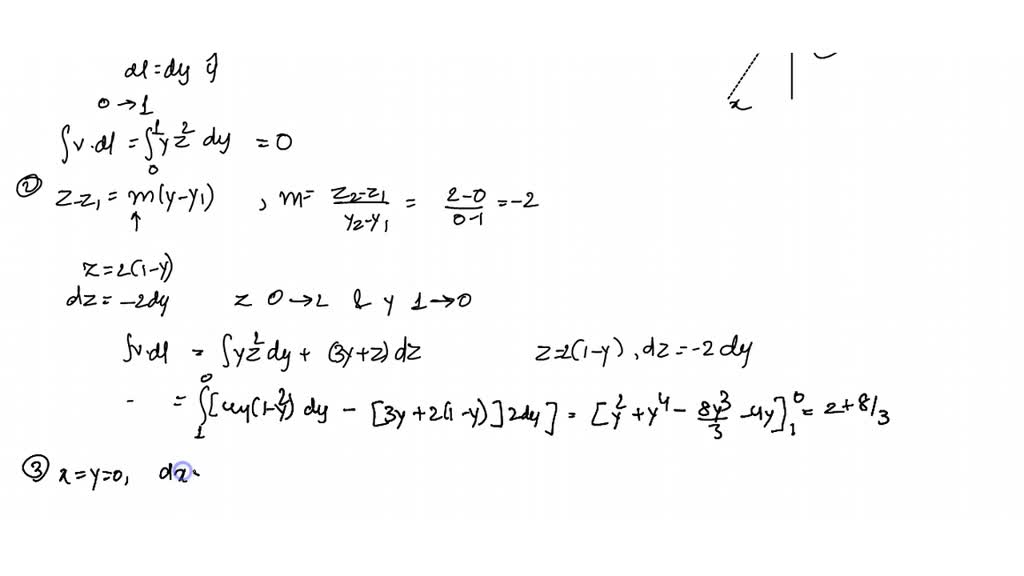 dl = dy ŷ
0 → 1
∫v·dl = ∫₀¹ yz² dy = 0
② z-z₁ = m(y-y₁) , m = (z₂-z₁)/(y₂-y₁) = (2-0)/(0-1) = -2
↑
x
z = 2(1-y)
dz = -2dy z 0→2 & y 1→0
∫v·dl = ∫yz² dy + (3y+z) dz z=2(1-y), dz = -2dy
= ∫₁⁰ [4y(1-y)²) dy - [3y+2(1-y)] 2dy] = [y² + y⁴ - 8y³/3 - 4y]₁⁰ = 2+8/3
③ x=y=0, dx